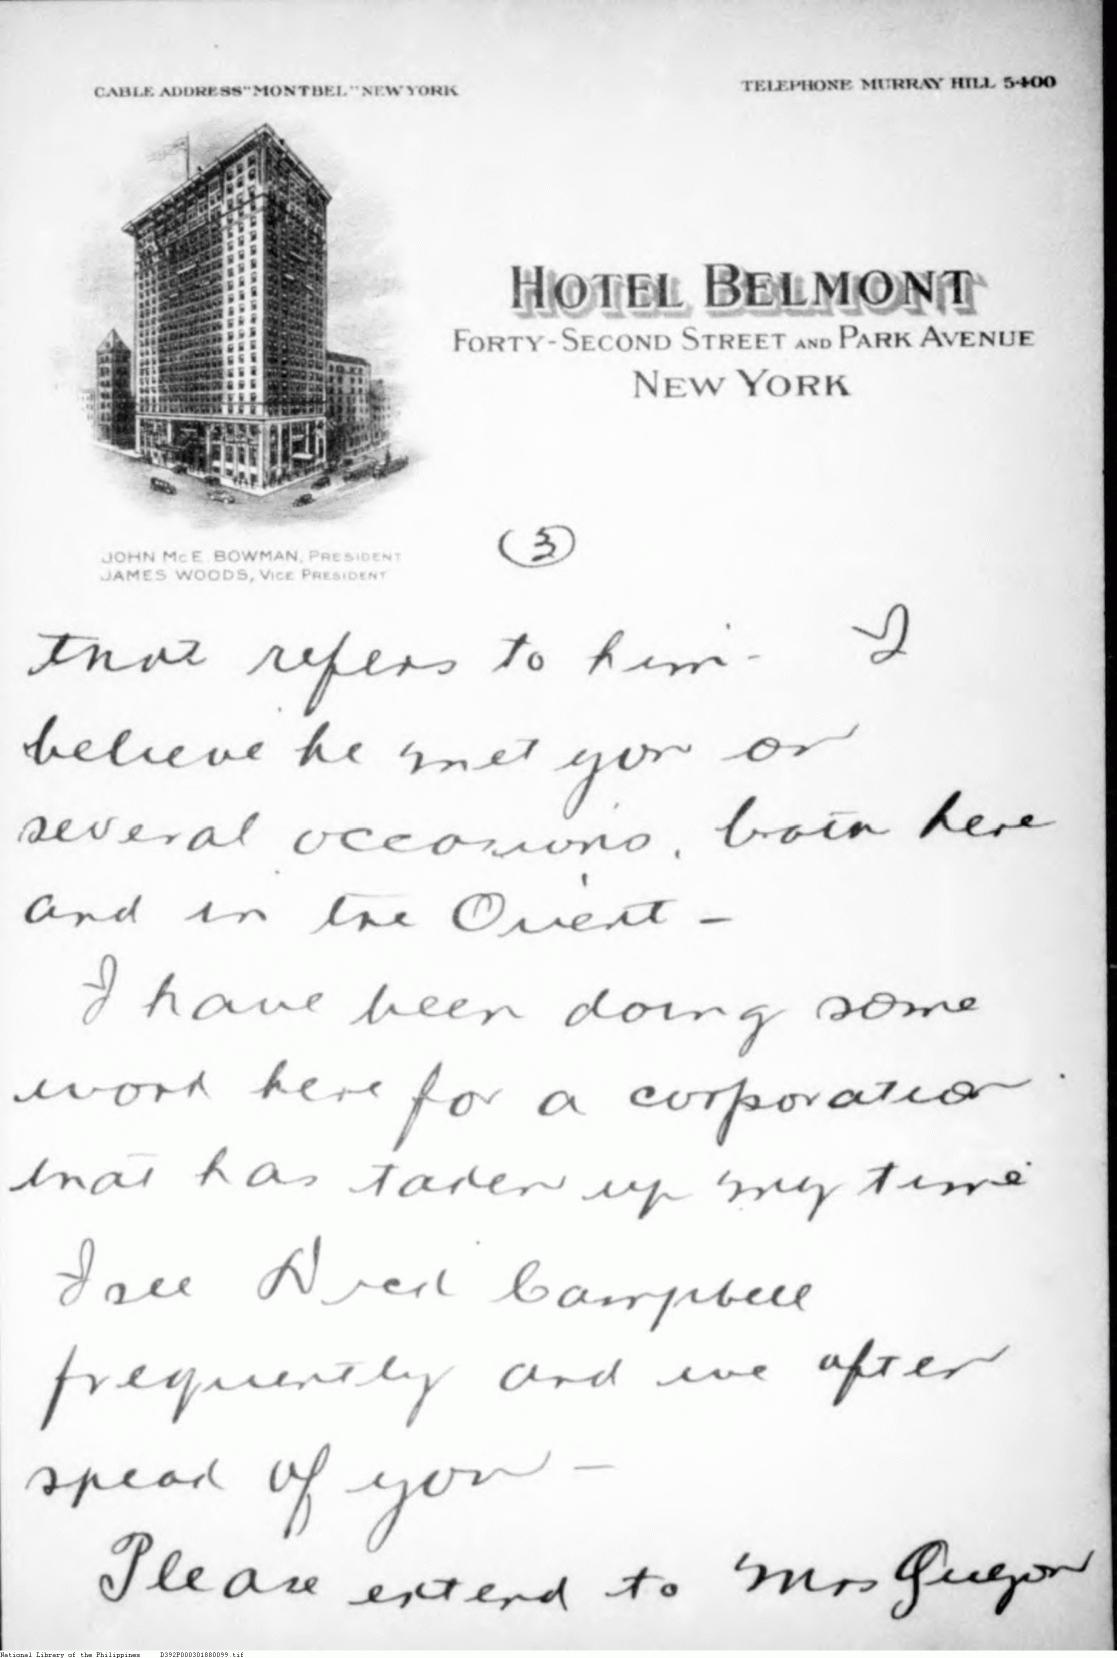 CABLE ADDRESS "MONTBEL" NEW YORK
TELEPHONE MURRAY HILL 5400
HOTEL BELMONT
FORTY-SECOND STREET AND PARK AVENUE
NEW YORK
JOHN McE. BOWMAN, PRESIDENT
JAMES WOODS, VICE PRESIDENT
3
that refers to him - I
believe he met you on
several occasions, both here
and in the Orient -
I have been doing some
work here for a corporation
that has taken up my time
I see Campbell
frequently and we often
speak of you -
Please extend to Mrs Quezon
National Library of the Philippines D392P000301880099.tif